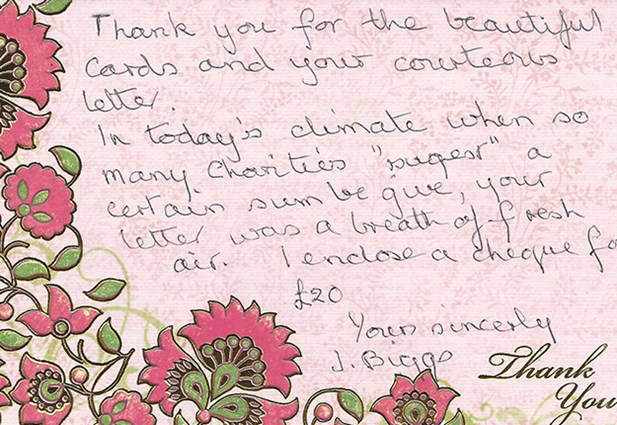 Thank you for the beautiful
cards and your courteous
letter.
In today's climate when so
many Charities "sugest" a
certain sum be give, your
letter was a breath of fresh
air. I enclose a cheque fo
£20
Yours sincerly
J. Biggs
Thank
You